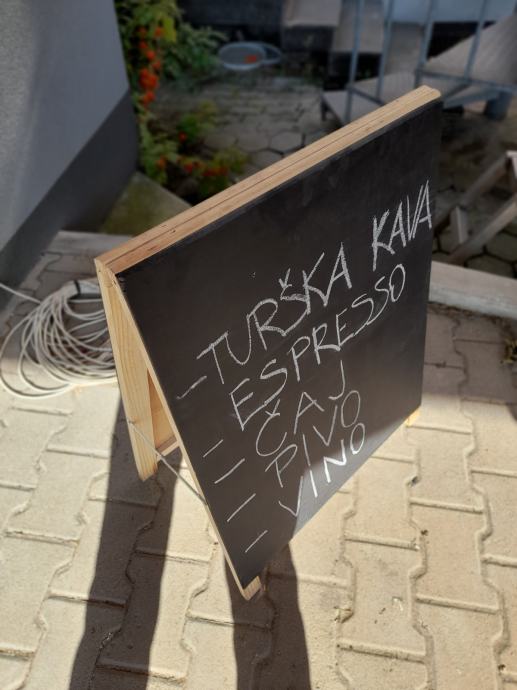 - TURŠKA KAVA
- ESPRESSO
- ČAJ
- PIVO
- VINO